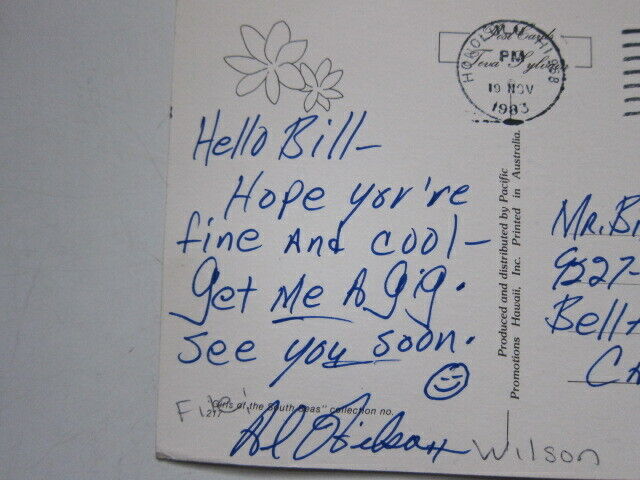 Hello Bill-
Hope you're
fine And cool-
get Me A gig.
see you soon.
"Girls of the South Seas" collection no.
217
Al Wilson
Wilson
Post Cards
HONOLULU, HI 968
PM
19 NOV
1983
Produced and distributed by Pacific
Promotions Hawaii, Inc. Printed in Australia.
Mr. Bi
9227-
Bell
CA